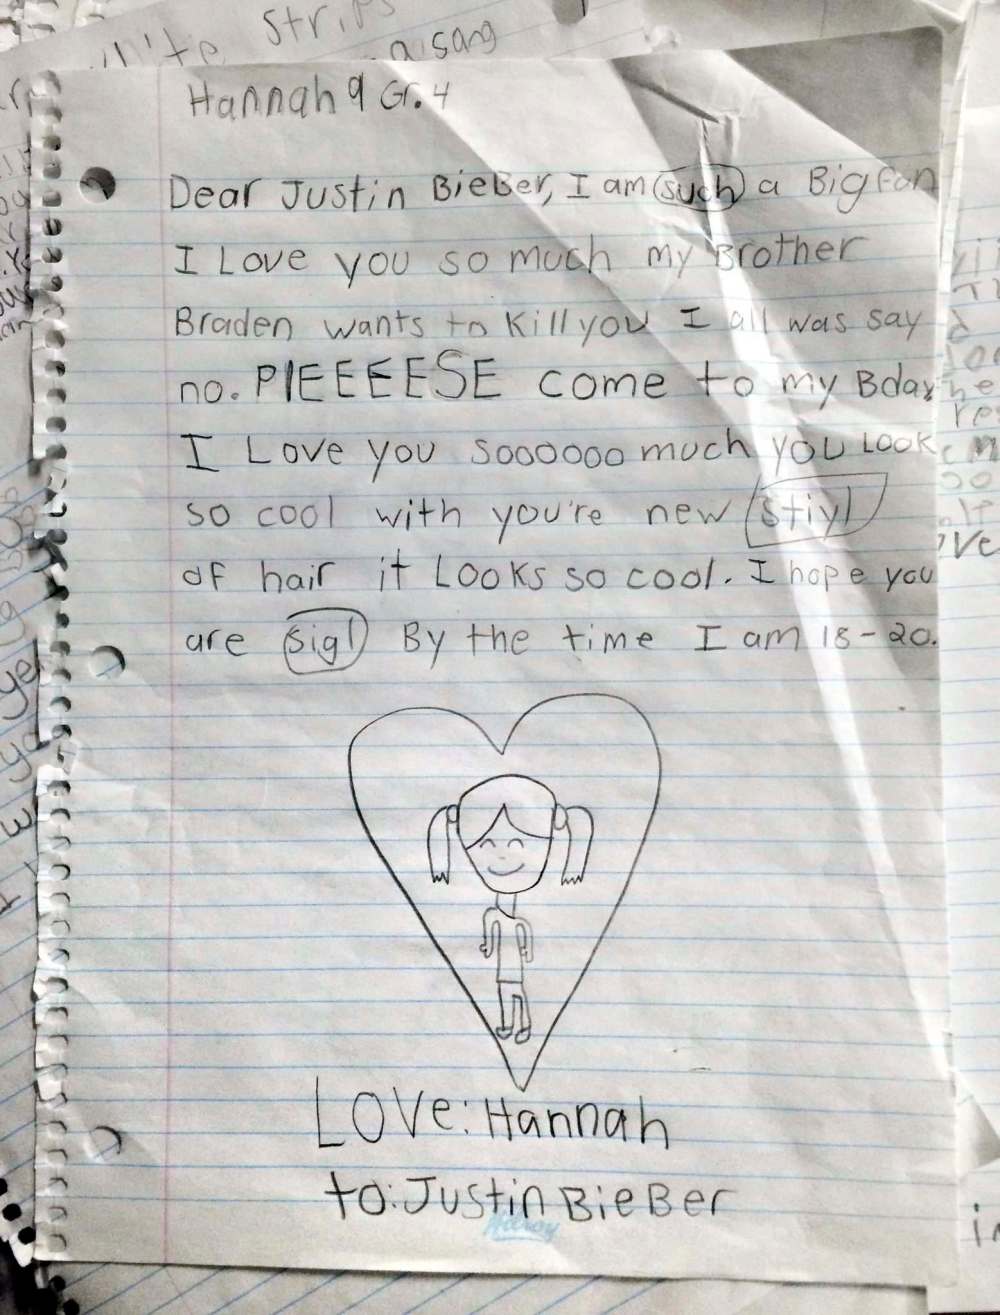 White Strips
a sang
Hannah 9 Gr. 4
Dear Justin BieBer, I am such a Big Fan
I Love you so much my Brother
Braden wants to Kill you I all was say
no. PlEEEEESE come to my Bday
I Love you soooooo much you Look
so cool with you're new stiyl
of hair it Looks so cool. I hope you
are sigl By the time I am 18-20.
LOVe: Hannah
to: Justin BieBer